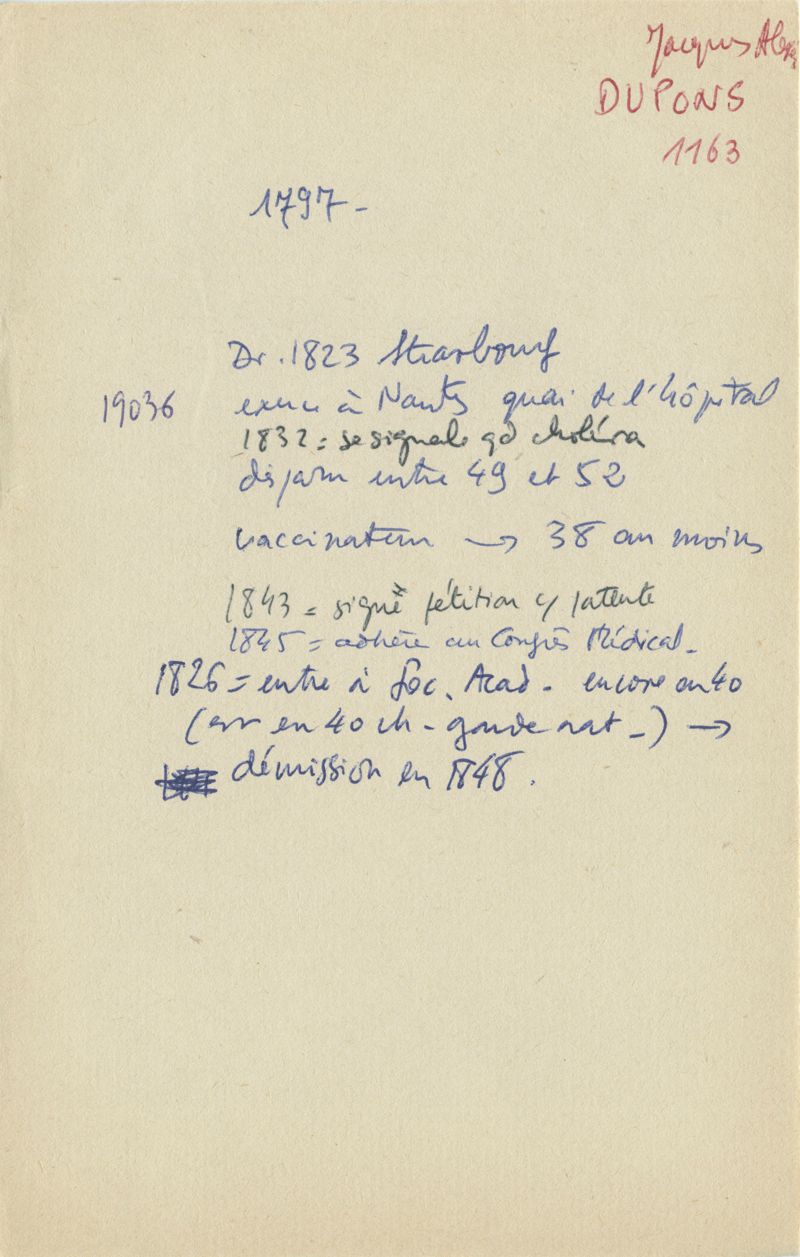 Jacques Alex
DUPONS
1163
1797 -
Dr. 1823 Strasbourg
19036 exerce à Nantes quai de l'hôpital
1832 = se signale qd choléra
disparu entre 49 et 52
vaccinateur → 38 au moins
1843 = signé pétition c/ patente
1845 = adhère au Congrès Médical -
1826 = entre à Soc. Acad - encore en 40
( en 40 ch - garde nat - ) →
démission en 1848.